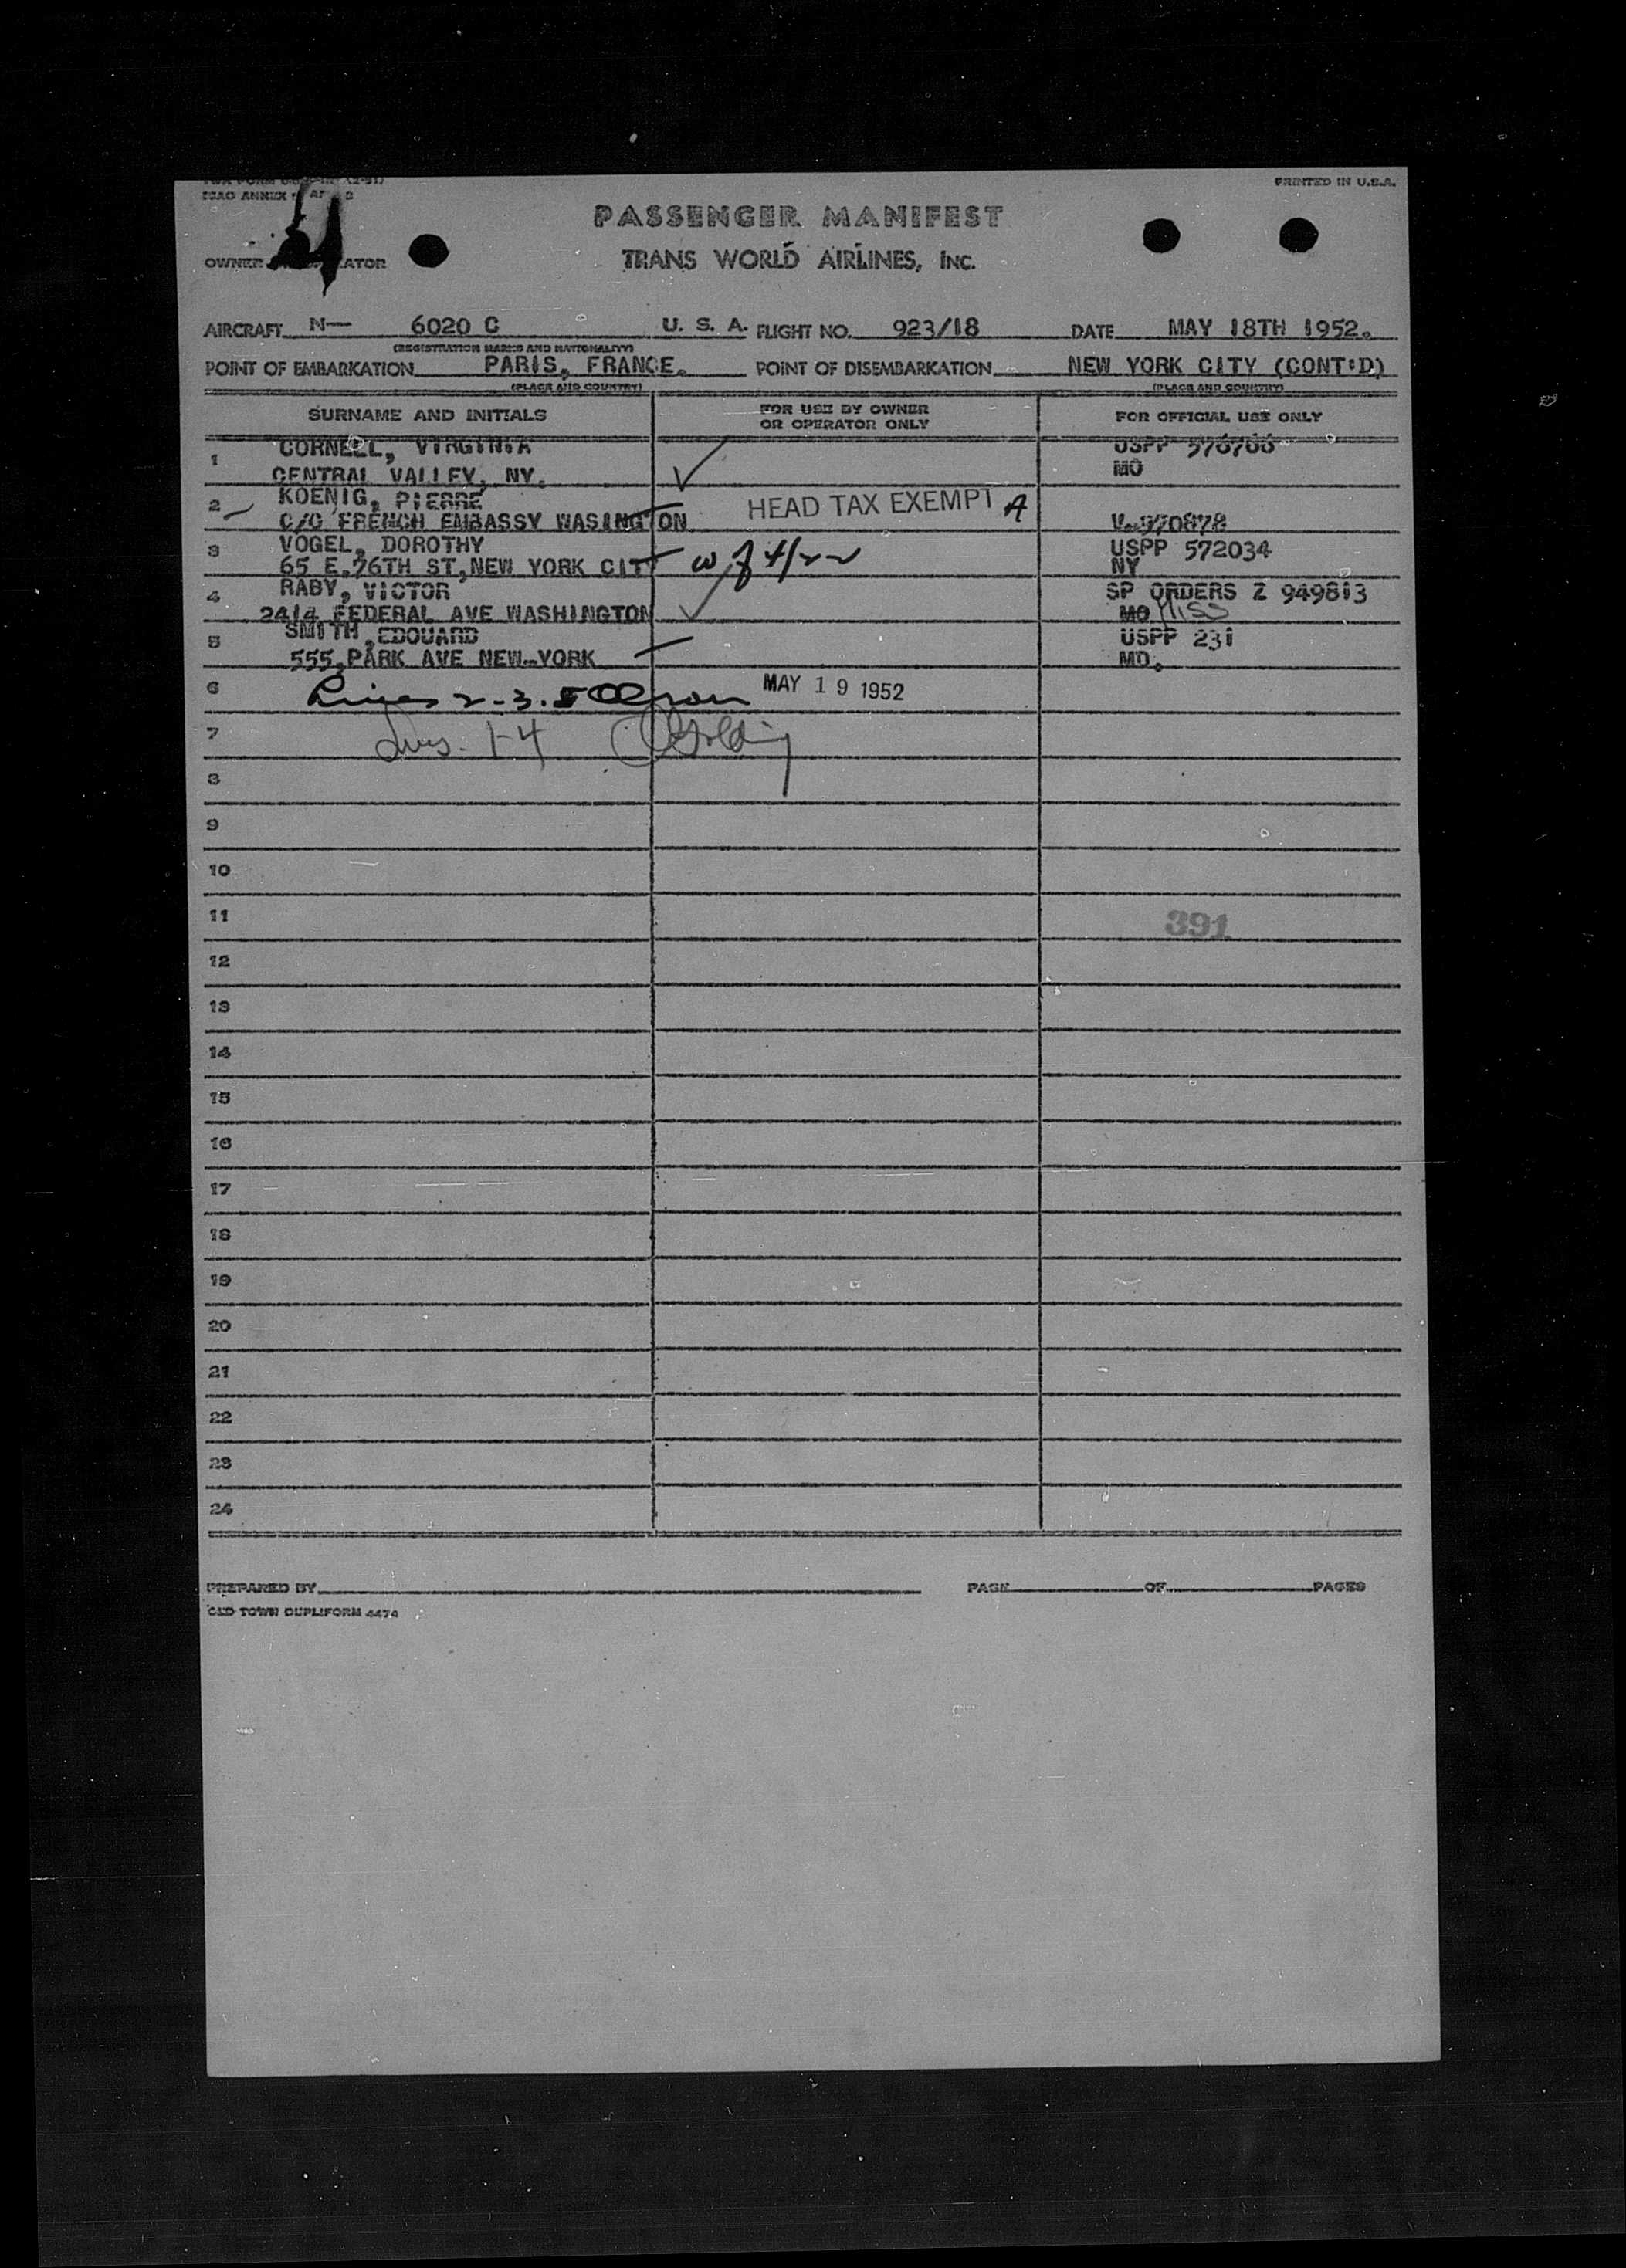 ICAO ANNEX
PRINTED IN U.S.A.
PASSENGER MANIFEST
TRANS WORLD AIRLINES, INC.
OWNER
AIRCRAFT N— 6020 C U. S. A. FLIGHT NO. 923/18 DATE MAY 18TH 1952.
(REGISTRATION MARKS AND NATIONALITY)
POINT OF EMBARKATION PARIS, FRANCE. POINT OF DISEMBARKATION NEW YORK CITY (CONT'D)
(PLACE AND COUNTRY) (PLACE AND COUNTRY)
SURNAME AND INITIALS FOR USE BY OWNER OR OPERATOR ONLY FOR OFFICIAL USE ONLY
1 CORNELL, VIRGINIA USPP 576766
CENTRAL VALLEY, NY. MO
2 KOENIG, PIERRE HEAD TAX EXEMPT A
C/O FRENCH EMBASSY WASINGTON V. 970878
3 VOGEL, DOROTHY USPP 572034
65 E.76TH ST, NEW YORK CITY NY
4 RABY, VICTOR SP ORDERS Z 949813
2414 FEDERAL AVE WASHINGTON MO Miss
5 SMITH, EDOUARD USPP 231
555, PARK AVE NEW-YORK MD.
6 Lines 2-3-5 MAY 19 1952
7 Lines. 1-4
8
9
10
11 391
12
13
14
15
16
17
18
19
20
21
22
23
24
PREPARED BY PAGE OF PAGES
OLD TOWN DUPLIFORM 4474